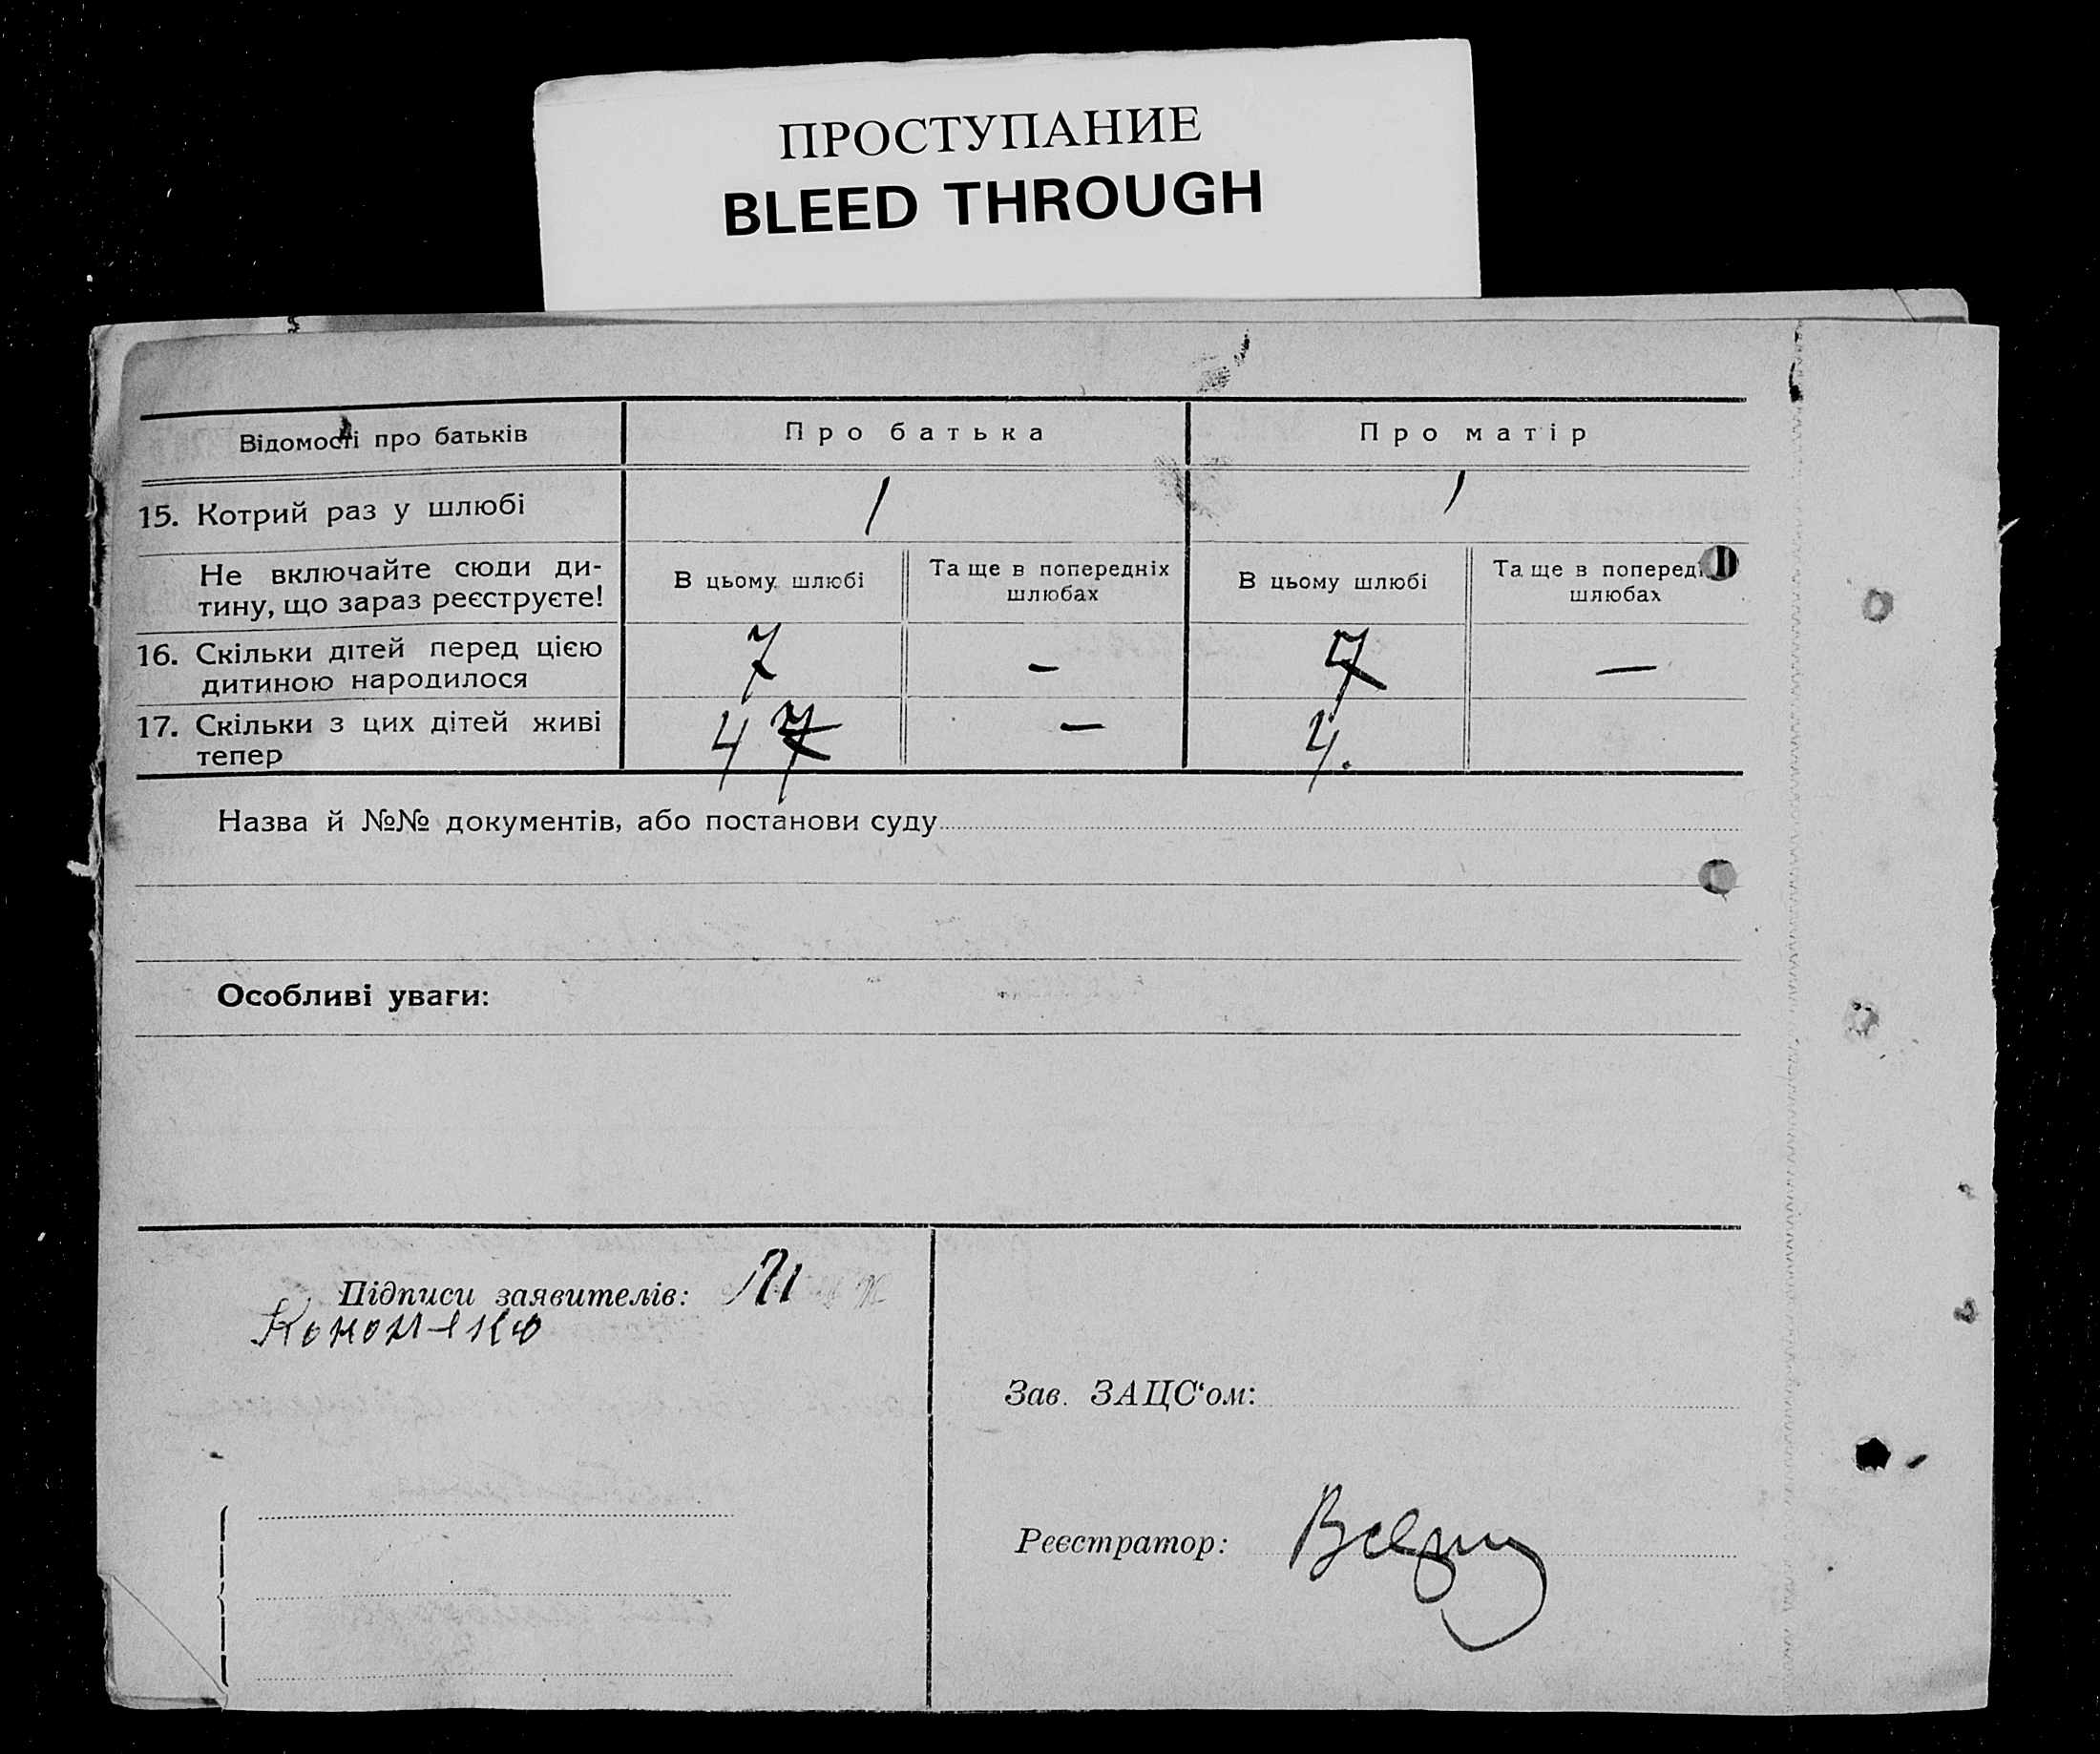 ПРОСТУПАНИЕ
BLEED THROUGH
Відомості про батьків
Про батька
Про матір
15. Котрий раз у шлюбі
1
1
Не включайте сюди ди-
тину, що зараз реєструєте!
В цьому шлюбі
Та ще в попередніх
шлюбах
В цьому шлюбі
Та ще в поперед
шлюбах
16. Скільки дітей перед цією
дитиною народилося
7
–
7
–
17. Скільки з цих дітей живі
тепер
4 7
–
4.
Назва й №№ документів, або постанови суду
Особливі уваги:
Підписи заявителів:
Зав. ЗАЦС‘ом:
Реєстратор: